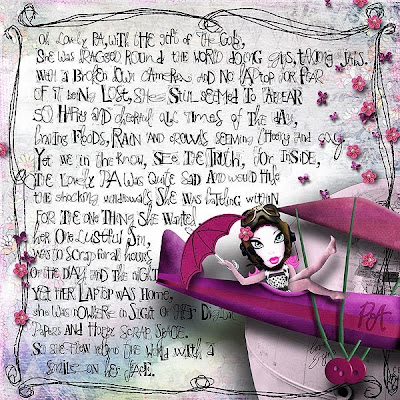 Oh Lovely PA, with the gift of the Gab,
She was dragged round the world doing gigs, taking jabs.
With a Broken Down Camera and No Laptop for fear
of it being Lost, She Still seemed to Appear
so Happy and cheerful all times of the day,
braving Floods, Rain and crowds seeming cheery and gay
Yet we in the know, see the truth, for inside,
the Lovely PA was Quite Sad and would hide
the shocking withdrawals She was battling within
For the one thing She wanted
her One Lustful Sin,
was to Scrap for all hours
of the Day and the Night
Yet Her Laptop was Home,
She was nowhere in Sight of Her Digital
Papers and Happy Scrap Space.
So she flew round the world with a
Smile on her face.
PA